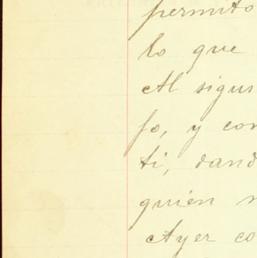 permito
lo que
Al sigu
jo, y con
ti, dand
quien n
Ayer co